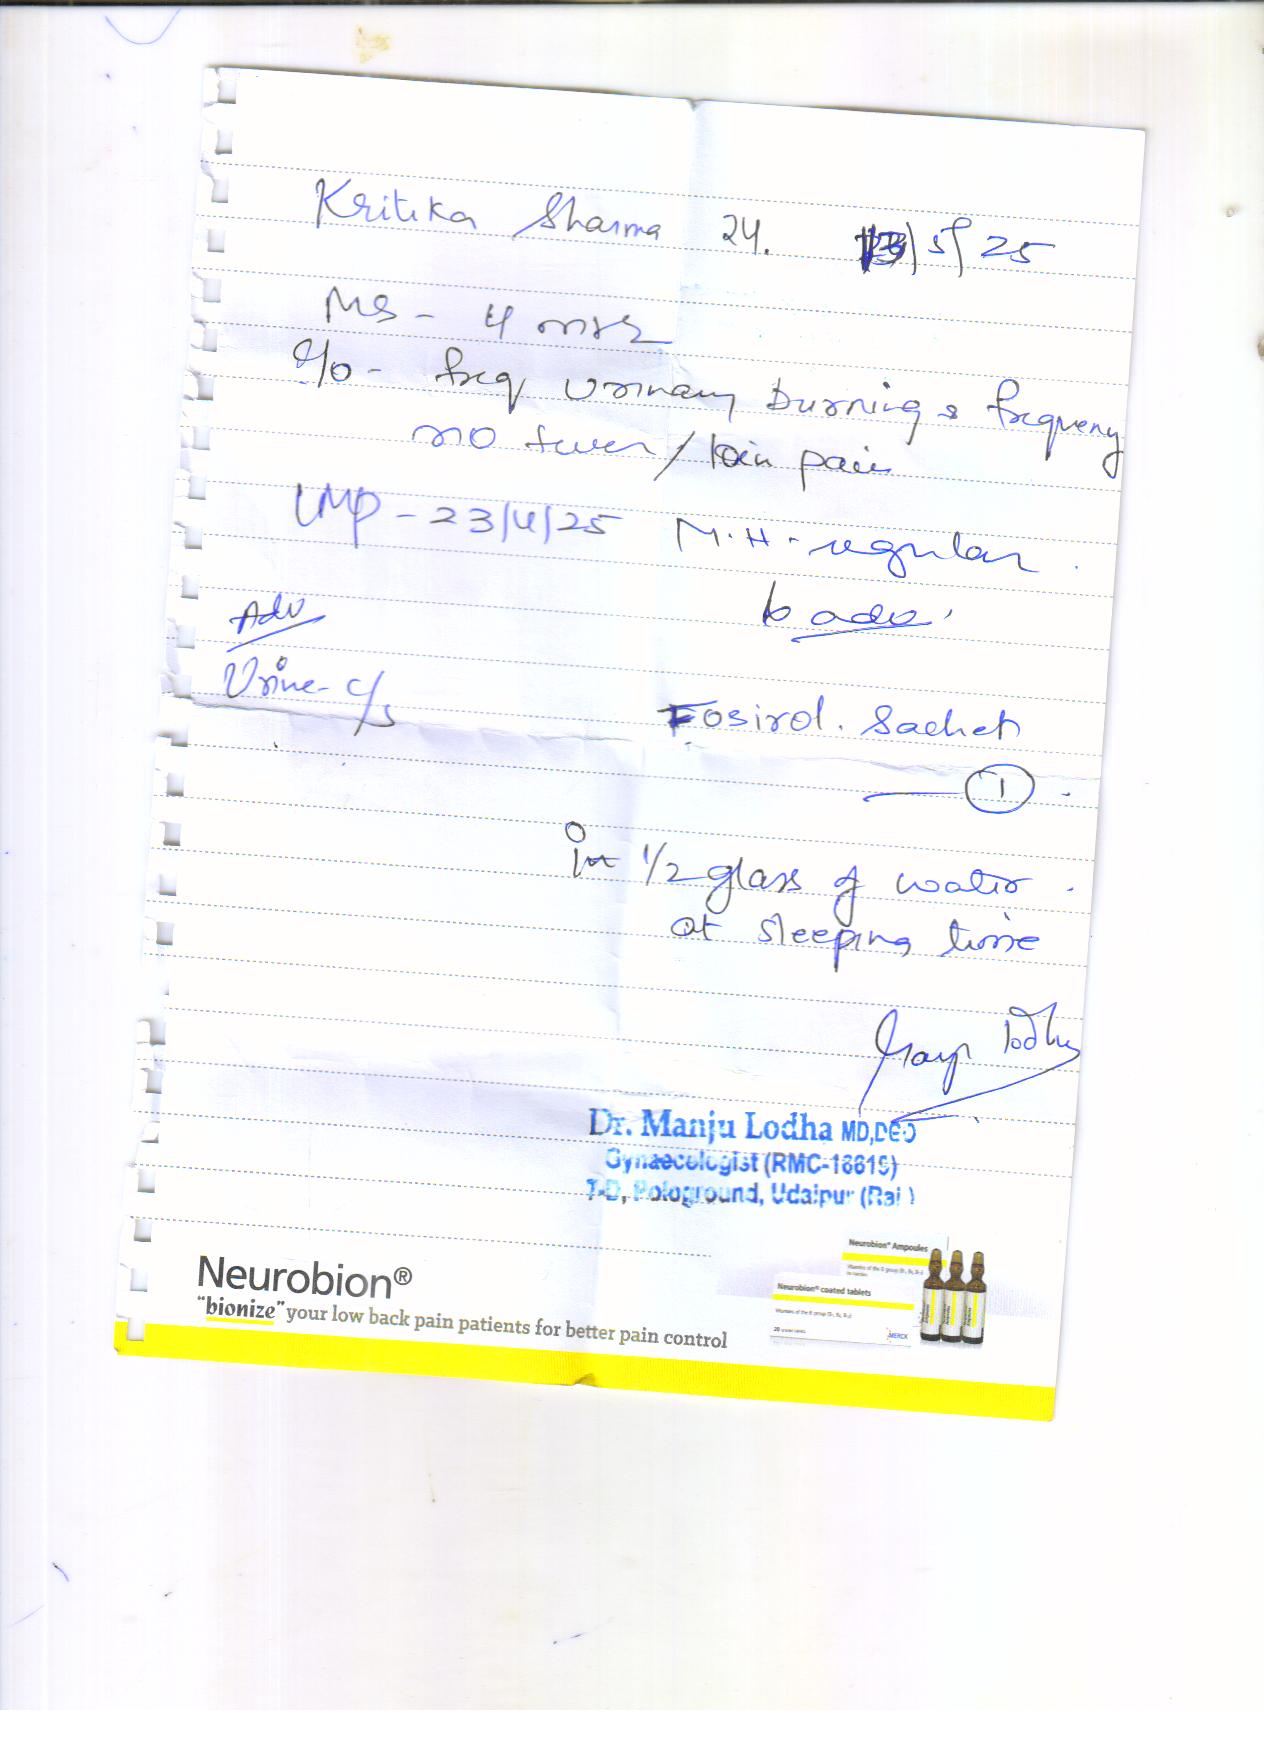 Kritika Sharma 24. 13/5/25
MS - 4 mnts
C/O - freq urinary burning & frequency
no fever / loin pain
LMP - 23/4/25 M.H - regular.
to adv.
Adv
Urine - C/S
Fosirol. Sachet
— 1 .
in 1/2 glass of water.
at sleeping time
Lodha
Dr. Manju Lodha MD,DGO
Gynaecologist (RMC-16619)
7-D, Pologround, Udaipur (Raj.)
Neurobion® Ampoules
Neurobion® coated tablets
MERCK
Neurobion®
"bionize" your low back pain patients for better pain control